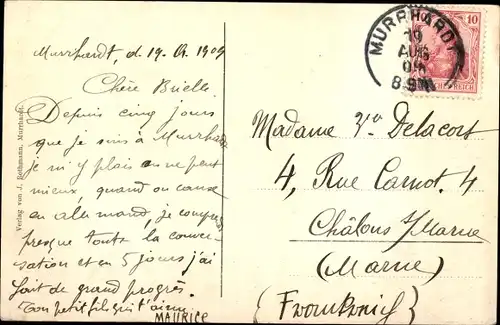 Murrhardt, d. 19. 1909
Depuis cinq jours
que je suis à Murrhard
je m'y plais on ne peut
mieux, quand on cause
en allemand, je comprends
presque toute la conver-
sation et en 5 jours j'ai
fait de grand progrès.
Ton petit fils qui t'aime
MAURICE
Verlag von J. Rothmann, Murrhardt.
MURRHARDT
19
AUG
09
10
DEUTSCHES REICH
Madame Delacort
4, Rue Carnot. 4
Châlons s/Marne
(Marne)
(Frankreich)